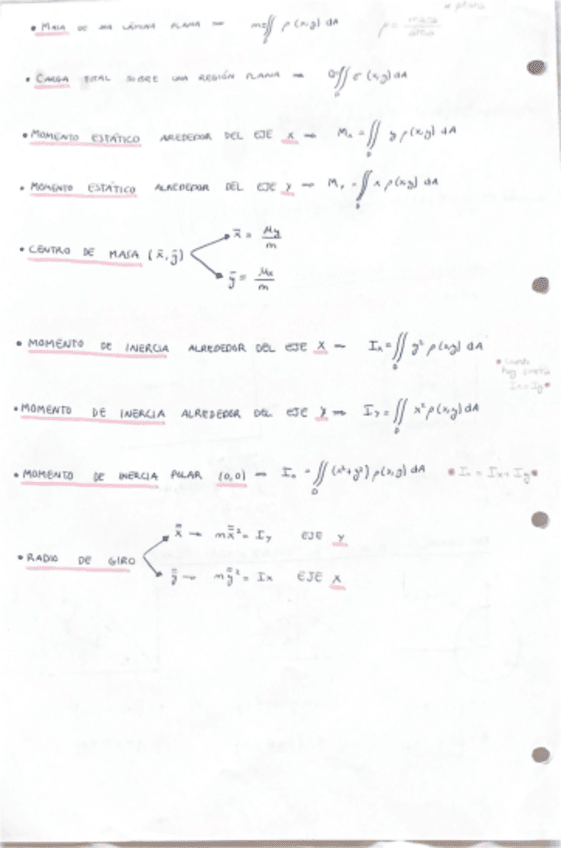 • plana
• MASA DE UNA LÁMINA PLANA → m=∬ ρ(x,y) dA ρ = masa/área
• CARGA TOTAL SOBRE UNA REGIÓN PLANA → Q=∬_D σ(x,y) dA
• MOMENTO ESTÁTICO AREDEDOR DEL EJE X → Mx = ∬_D y ρ(x,y) dA
• MOMENTO ESTÁTICO ALREDEDOR DEL EJE Y → My = ∬_D x ρ(x,y) dA
• CENTRO DE MASA (x̄, ȳ)
x̄ = My/m
ȳ = Mx/m
• MOMENTO DE INERCIA ALREDEDOR DEL EJE X → Ix = ∬_D y² ρ(x,y) dA
• Cuando
hay simetría
Ix = Iy •
• MOMENTO DE INERCIA ALREDEDOR DEL EJE Y → Iy = ∬_D x² ρ(x,y) dA
• MOMENTO DE INERCIA POLAR (0,0) → I₀ = ∬_D (x²+y²) ρ(x,y) dA • I₀ = Ix + Iy •
• RADIO DE GIRO
x̿ → m x̿² = Iy EJE Y
y̿ → m y̿² = Ix EJE X